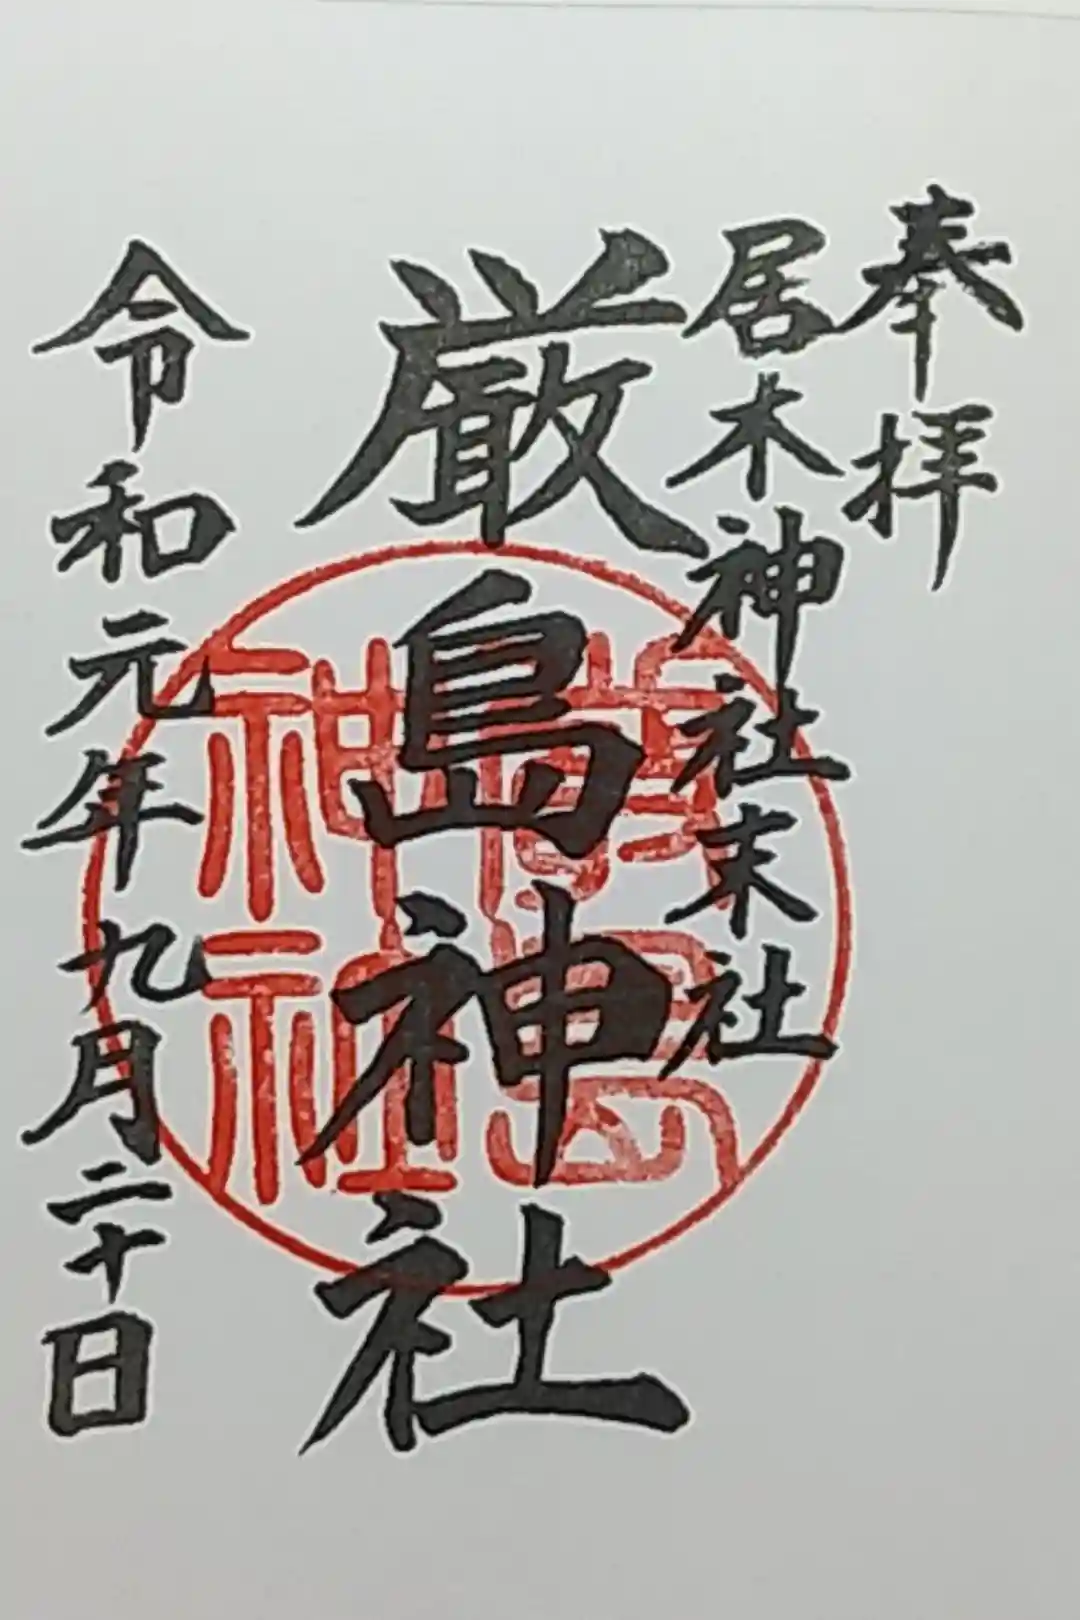 奉拝
居木神社末社
厳島神社
令和元年九月二十日